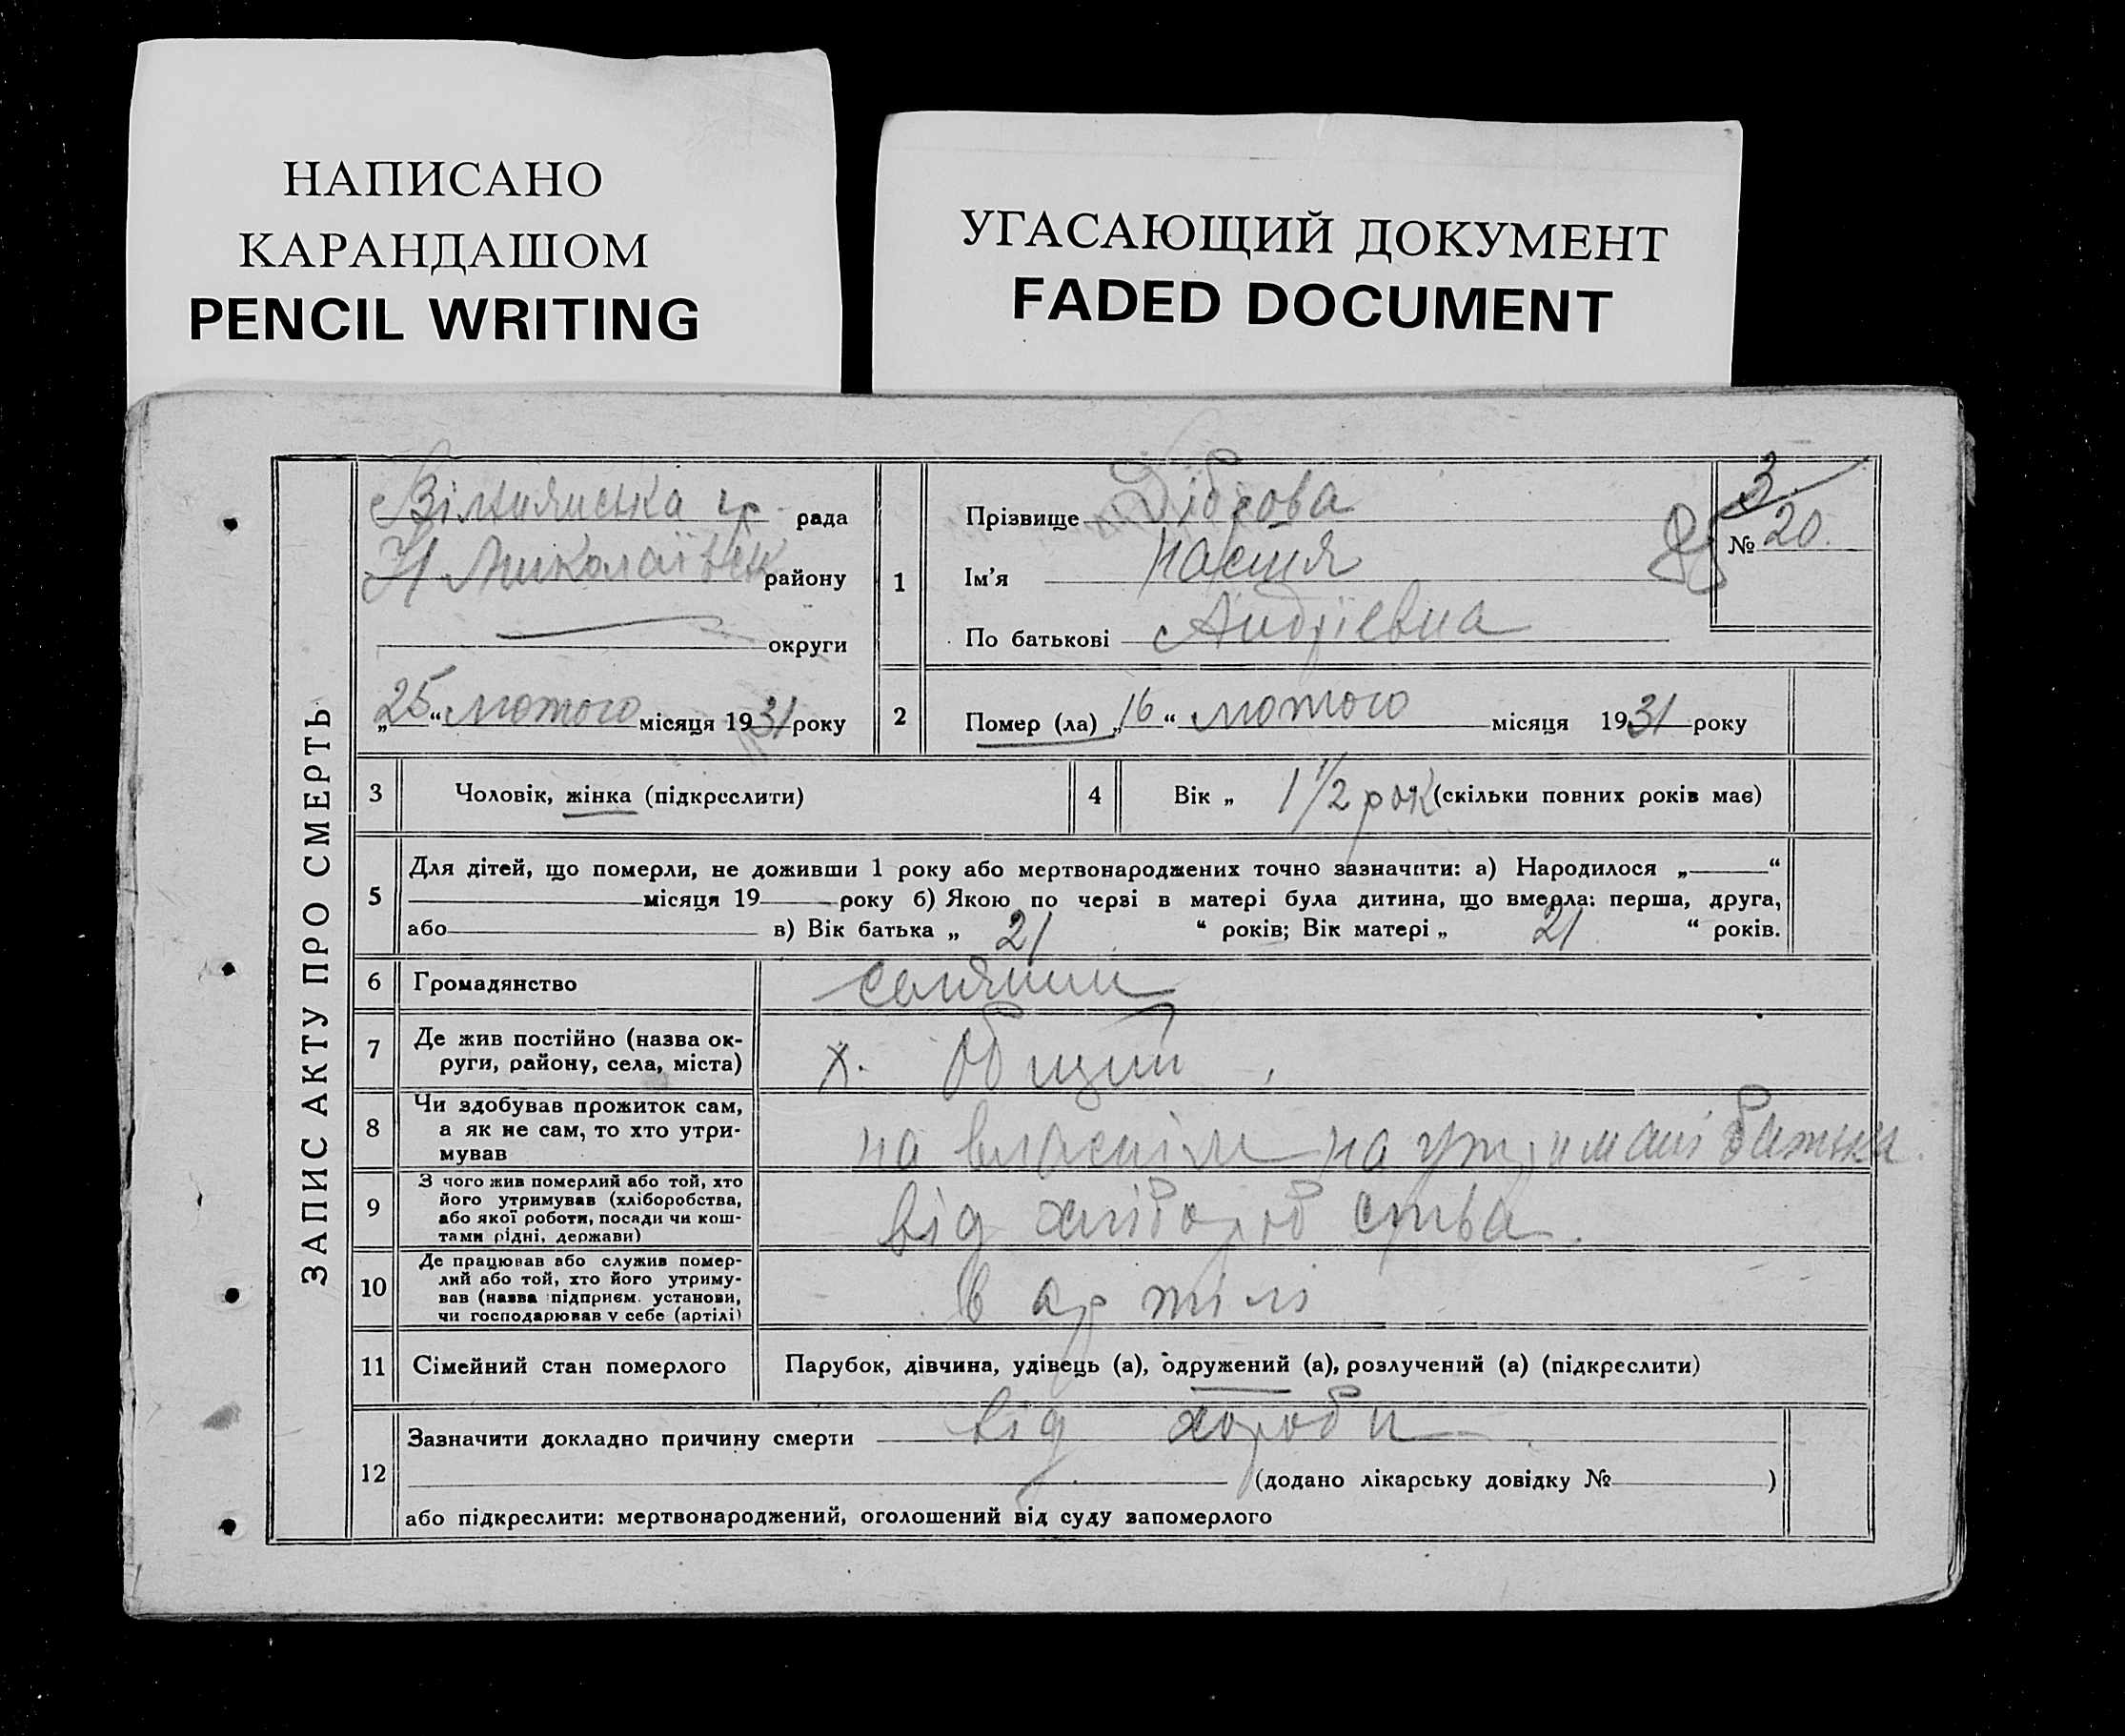 НАПИСАНО
КАРАНДАШОМ
PENCIL WRITING
УГАСАЮЩИЙ ДОКУМЕНТ
FADED DOCUMENT
ЗАПИС АКТУ ПРО СМЕРТЬ
рада
Н Миколаївськ району
округи
„25“ лютого місяця 1931 року
1
Прізвище Діброва
Ім'я Настя
По батькові Андріевна
3
№ 20.
2
Помер (ла) „16“ лютого місяця 1931 року
3
Чоловік, жінка (підкреслити)
4
Вік „ 1 1/2 рок (скільки повних років має)
5
Для дітей, що померли, не доживши 1 року або мертвонароджених точно зазначити: а) Народилося „ “
місяця 19 року б) Якою по черві в матері була дитина, що вмерла: перша, друга,
або в) Вік батька „ 21 “ років; Вік матері „ 21 “ років.
6
Громадянство селянин
7
Де жив постійно (назва ок-
руги, району, села, міста)
х. Общий
8
Чи здобував прожиток сам,
а як не сам, то хто утри-
мував
на власнім на утримані батька
9
З чого жив померлий або той, хто
його утримував (хліборобства,
або якої роботи, посади чи кош-
тами рідні, держави)
від хліборобства.
10
Де працював або служив помер-
лий або той, хто його утриму-
вав (назва підприєм. установи,
чи господарював у себе (артілі)
в артілі
11
Сімейний стан померлого
Парубок, дівчина, удівець (а), одружений (а), розлучений (а) (підкреслити)
12
Зазначити докладно причину смерти від хороби
(додано лікарську довідку № )
або підкреслити: мертвонароджений, оголошений від суду запомерлого